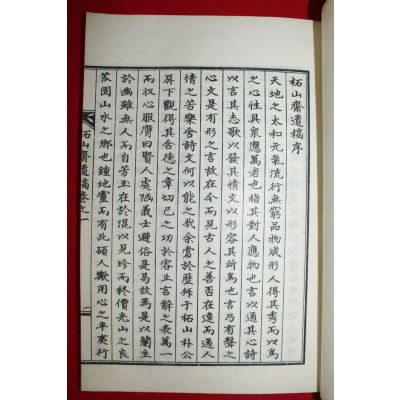 柘山齋遺稿序
天地之太和元氣流行無窮品物成形人得其秀而以爲
之心性具衆應萬者也指其對人應物也言以通其心詩
以言其志歌以發其情文以形容其所爲也言乃有聲之
心文是有形之言故在今而見古人之善否在遠而通人
情之苦樂舍詩文何以能之哉余嘗於歷拜于柘山朴公
屛下觀得其含德之章切己之功於容止言辭之表萬一
而収心服膺曰賢人處陋義士避俗是易故焉是以蘭生
於幽雖無人而自芳玉在於混以見珍而終價光山之良
苽園山水之鄕也鍾地靈而有此碩人歟用心之平夷行
柘山齋遺稿卷之一